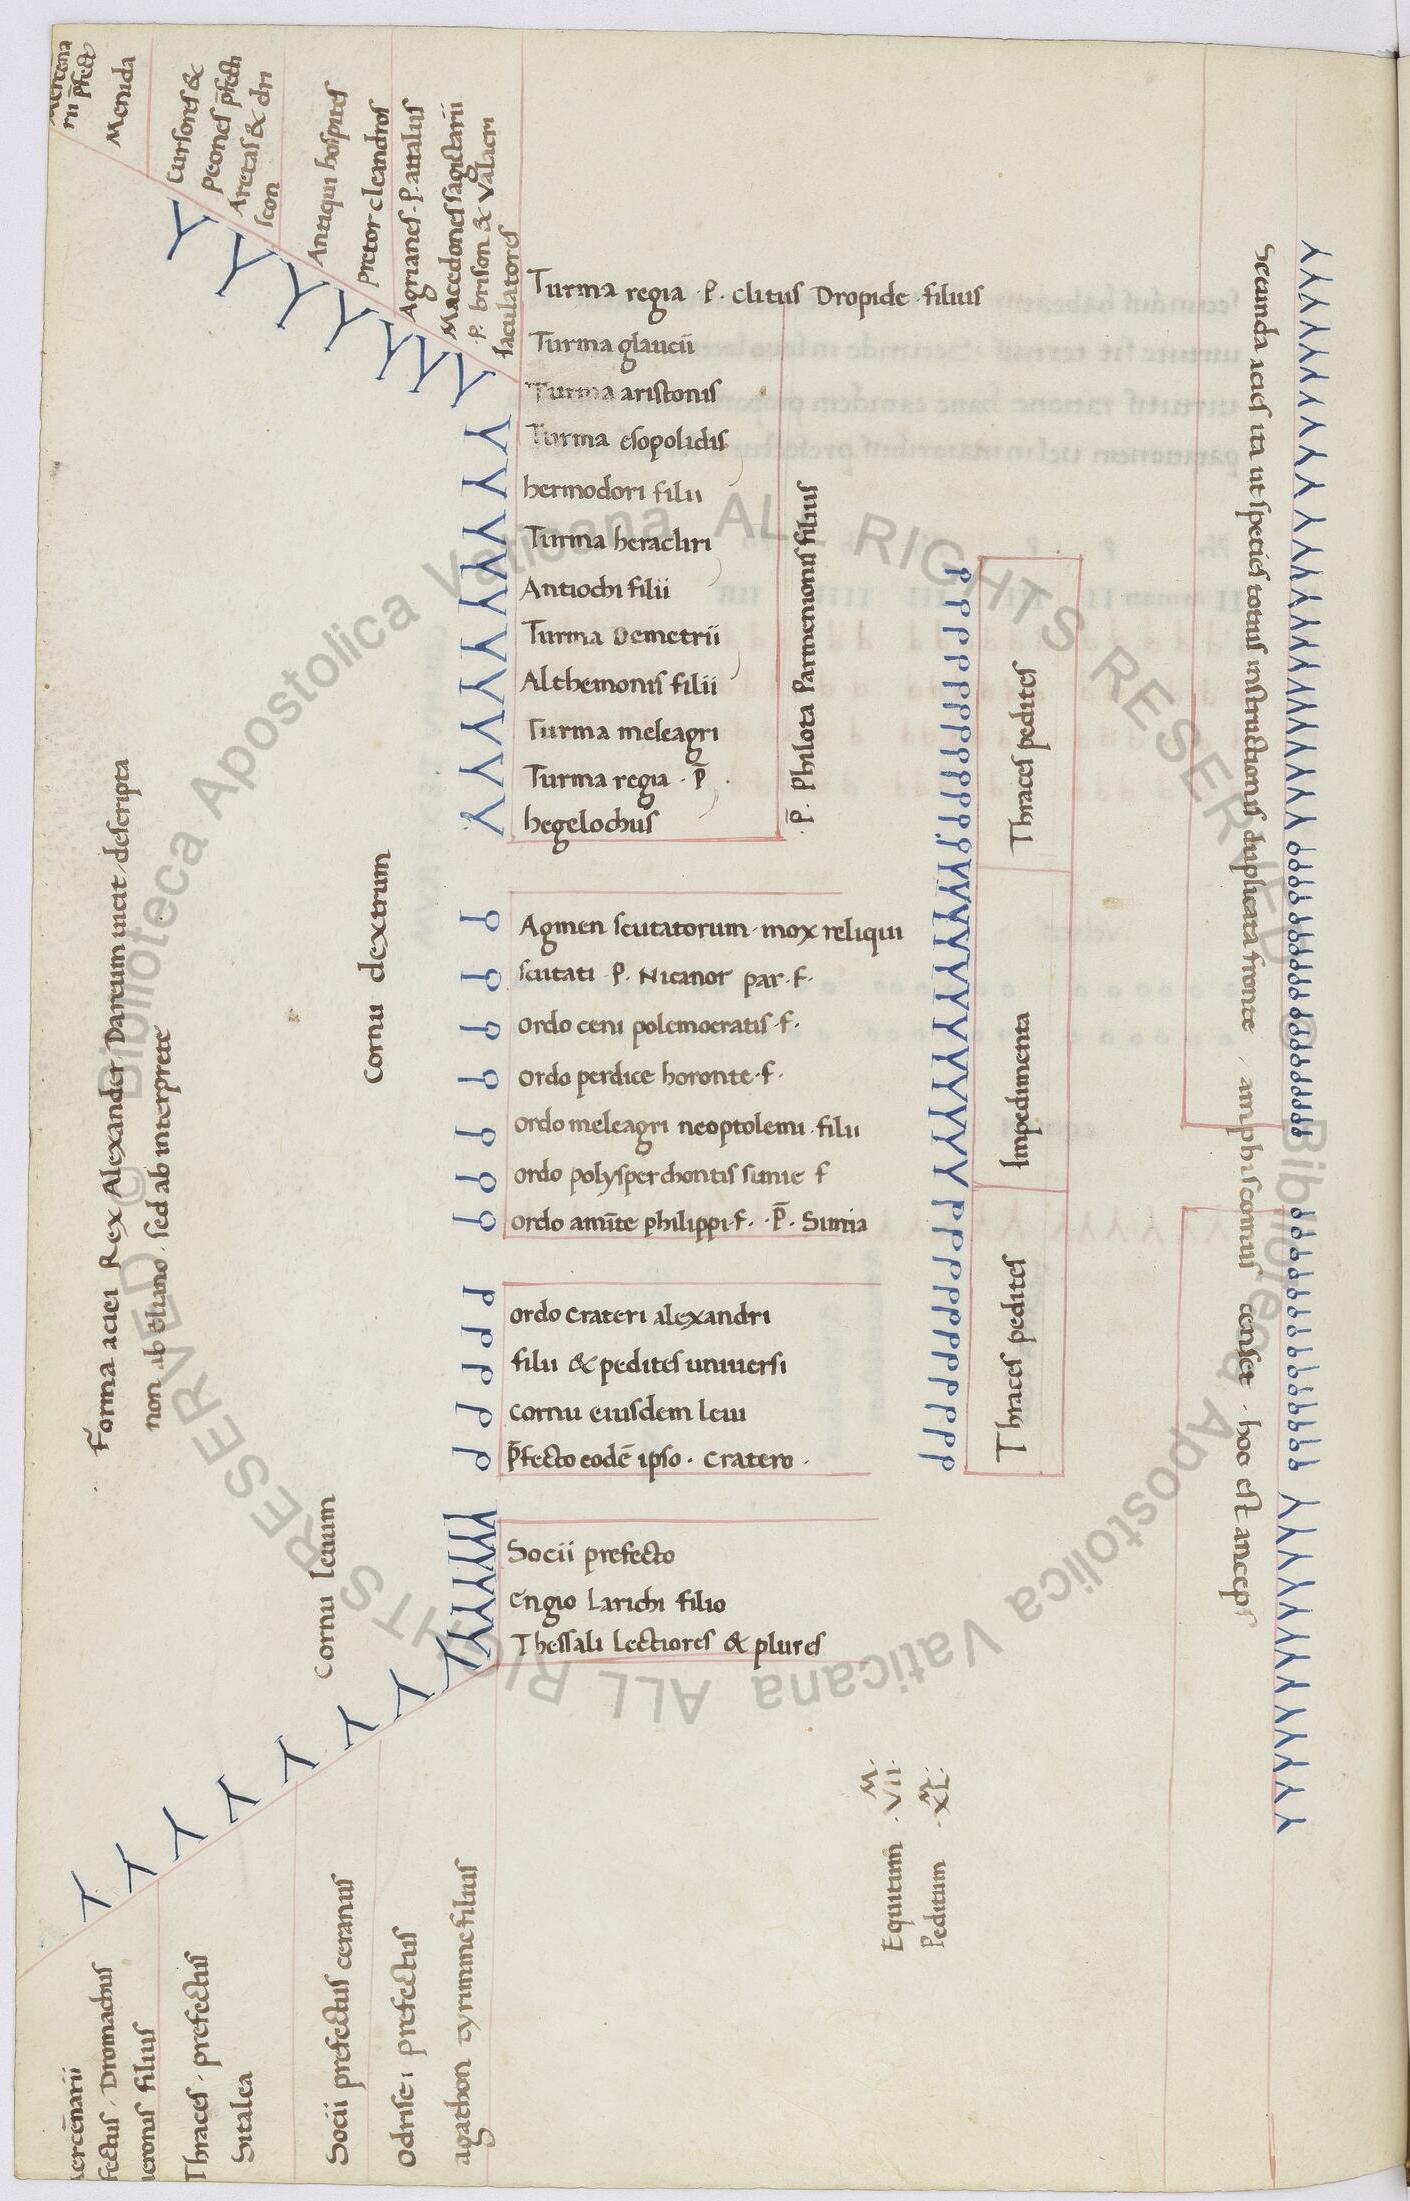 Forma aciei Rex Alexander Darium uicit descripta
non ab eliano. sed ab interprete
Mercena
rii p̄fect
Menida
Cursores &
Peones p̄fecti
Aretas & dri
scon
Antiqui hospites
Pretor cleandros
Agrianes. P. attalus
Macedones sagittarii
P. brison & Valacri
Iaculatores
Cornu dextrum
Turma regia . P. Clitus Dropide . filius
Turma glaucii
Turma aristonis
Turma esopolidis
hermodori filii
Turma heracliri
Antiochi filii
Turma Demetrii
Althemonis filii
Turma meleagri
Turma regia . P̄ .
hegelochus
. P̄. Philota Parmenionis filius
Agmen scutatorum . mox reliqui
scutati P. Nicanor par. f.
Ordo ceni polemocratis . f.
Ordo perdice horonte . f.
Ordo meleagri neoptolemi . filii
Ordo polysperchontis simie f
Ordo amīte philippi . f. . P̄. Simia
Ordo crateri alexandri
filii & pedites uniuersi
cornu eiusdem leui
p̄fecto eodē ipso . Cratero .
Cornu leuum
Socii prefecto
Engio Larichi filio
Thessali Lectiores & plures
Thraces pedites
Impedimenta
Thraces pedites
Secunda acies ita ut species totius instructionis duplicata fronte , amphistomus censet . hoc est anceps
Equitum . VII. M.
Peditum . XL. M.
ercēnarii
fectus . Dromachus
ieronis filius
Thraces . prefectus
Sitalca
Socii prefectus ceranus
Odrise i prefectus
agathon tyrimme filius
© Biblioteca Apostolica Vaticana ALL RIGHTS RESERVED
© Biblioteca Apostolica Vaticana ALL RIGHTS RESERVED